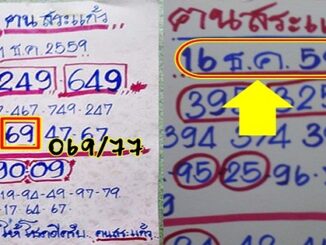 ฅนสระแก้ว
1 ธ.ค. 2559
249 649
467-749-247
69 47-67
069/77
90-09
19-94-49-97-79
17-64-67
ฅนสระแก้ว
ฅนสระแก้ว
16 ธ.ค. 59
395 325
394 374
95 25 96